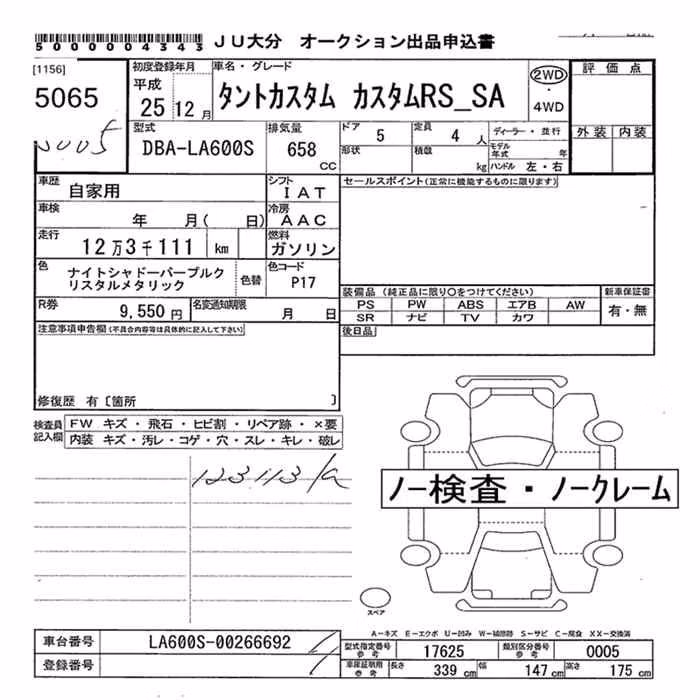 5000004343 JU大分 オークション出品申込書
[1156] 初度登録年月 車名・グレード 評価点
5065 平成 25年 12月 タントカスタム カスタムRS_SA 2WD ・ 4WD
5005
型式 DBA-LA600S 排気量 658 CC ドア 5 定員 4 人 ディーラー・並行 外装 内装
形状 積載 kg モデル年式 年 ハンドル 左・右
車歴 自家用 シフト IAT セールスポイント(正常に機能するものに限ります)
車検 年 月( 日) 冷房 AAC
走行 12万3千111 km 燃料 ガソリン
色 ナイトシャドーパープルク 色替 色コード P17
リスタルメタリック
装備品(純正品に限り○をつけてください) 新車保証書
R券 9,550円 名変通知期限 月 日 PS PW ABS エアB AW 有・無
SR ナビ TV カワ
注意事項申告欄(不具合内容等は具体的に記入して下さい) 後日品
修復歴 有〔箇所 〕
検査員 FW キズ・飛石・ヒビ割・リペア跡・×要
記入欄 内装 キズ・汚レ・コゲ・穴・スレ・キレ・破レ
123113
ノー検査・ノークレーム
スペア
A-キズ E-エクボ U-凹み W-補修跡 S-サビ C-腐食 XX-交換済
車台番号 LA600S-00266692 型式指定番号 参考 17625 類別区分番号 参考 0005
登録番号 車庫証明用 参考 長さ 339 cm 幅 147 cm 高さ 175 cm